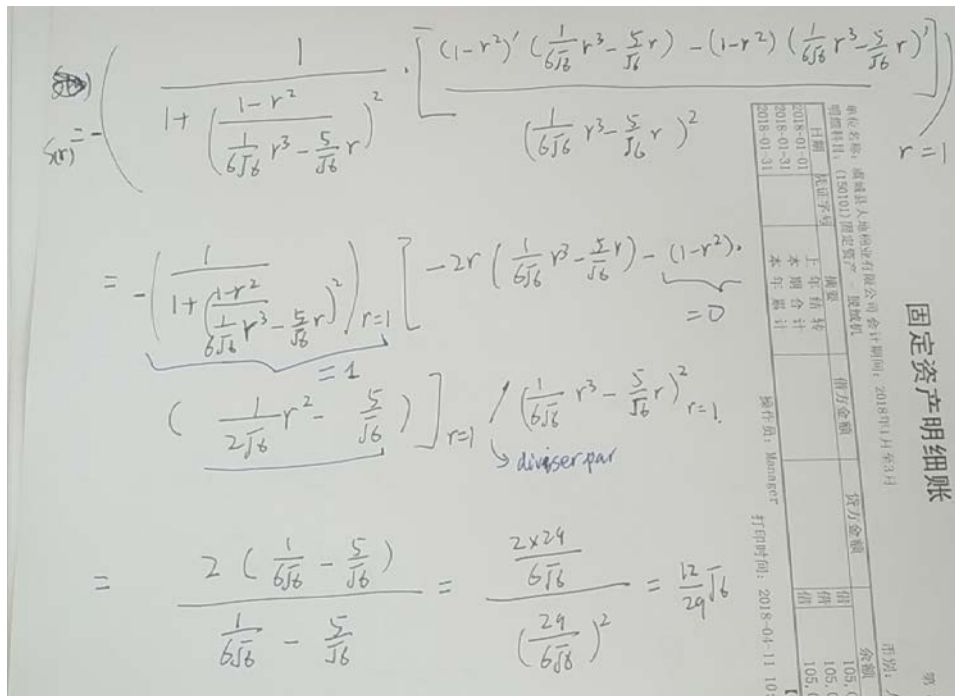 S(r) = -( 1 / (1 + ((1-r²) / (1/(6√6) r³ - 5/√6 r))²) · [ ((1-r²)' (1/(6√6) r³ - 5/√6 r) - (1-r²) (1/(6√6) r³ - 5/√6 r)') / (1/(6√6) r³ - 5/√6 r)² ] ) r=1
= -( 1 / (1 + ((1-r²) / (1/(6√6) r³ - 5/√6 r))²) ) r=1 [ -2r (1/(6√6) r³ - 5/√6 r) - (1-r²)·
= 1
= 0
( 1/(2√6) r² - 5/√6 ) ] r=1 / (1/(6√6) r³ - 5/√6 r)² r=1.
↳ diviser par
= 2 (1/(6√6) - 5/√6) / (1/(6√6) - 5/√6) = (2×29 / 6√6) / (29 / 6√6)² = 12/29 √6
固定资产明细账
第
单位名称: 虞城县大地棉业有限公司 会计期间: 2018年1月至3月
币别:
明细科目: (150101)固定资产 - 脱绒机
日期 凭证字号 摘要 借方金额 贷方金额 余额
2018-01-01 上年结转 借 105.
2018-01-31 本期合计 借 105.0
2018-01-31 本年累计 借 105.
操作员: Manager 打印时间: 2018-04-11 10: